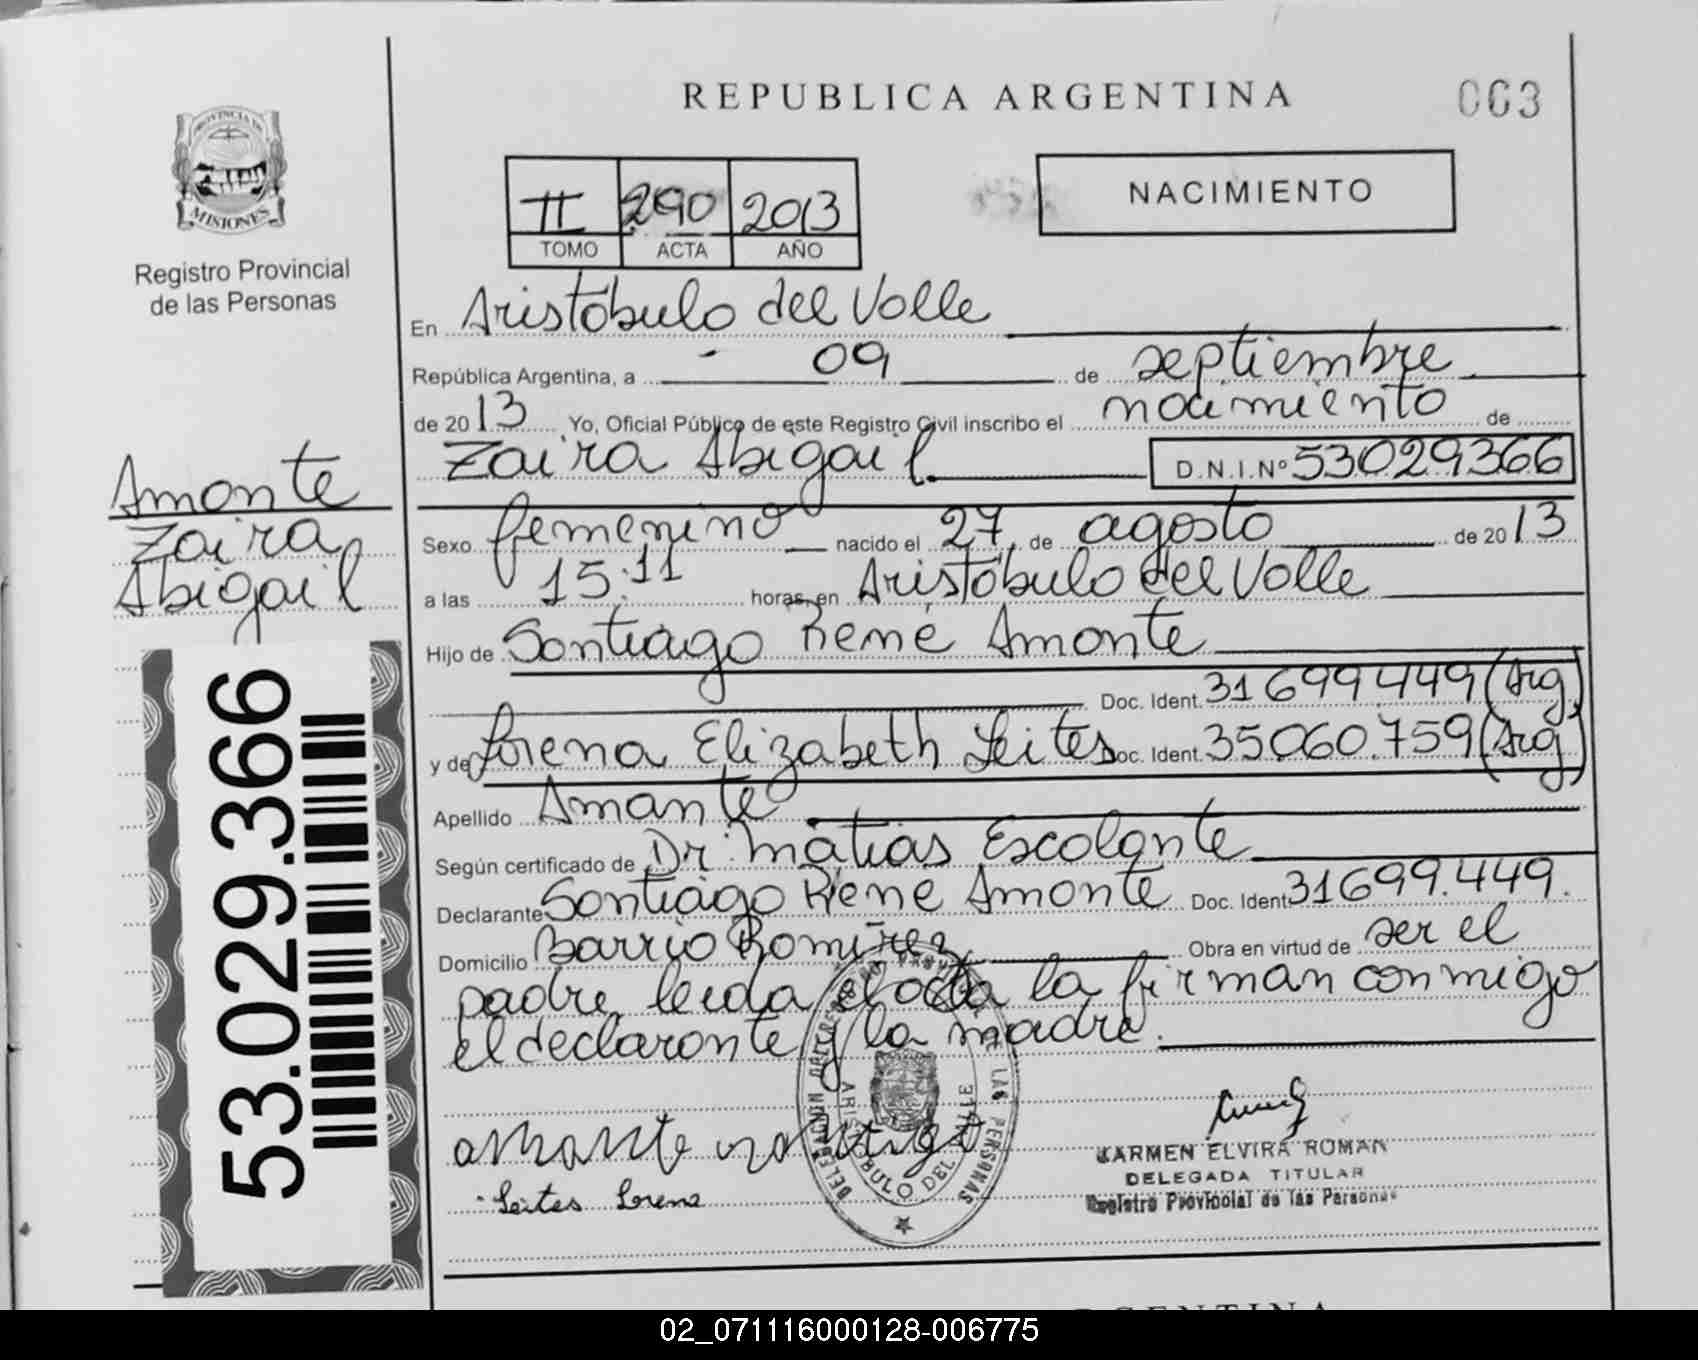 REPUBLICA ARGENTINA
063
PROVINCIA DE
MISIONES
Registro Provincial
de las Personas
II 290 2013
TOMO ACTA AÑO
NACIMIENTO
En Aristóbulo del Valle
República Argentina, a 09 de septiembre
de 2013 Yo, Oficial Público de este Registro Civil inscribo el nacimiento de
Zaira Abigail D.N.I.Nº 53029366
Amante
Zaira
Abigail
Sexo femenino nacido el 27 de agosto de 2013
a las 15:11 horas, en Aristóbulo del Valle
Hijo de Santiago René Amante
Doc. Ident. 31699449 (Arg)
y de Lorena Elizabeth Leites Doc. Ident. 35060.759 (Arg)
Apellido Amante
Según certificado de Dr. Matías Escalante
Declarante Santiago René Amante Doc. Ident. 31699.449.
Domicilio Barrio Ramírez Obra en virtud de ser el
padre, leida el acta la firman conmigo
el declarante y la madre.
53.029.366
amante santiago
Leites Lorena
DELEGACION DEL REGISTRO PROVINCIAL DE LAS PERSONAS
ARISTOBULO DEL VALLE
KARMEN ELVIRA ROMAN
DELEGADA TITULAR
Registro Provincial de las Personas
ARGENTINA
02_071116000128-006775